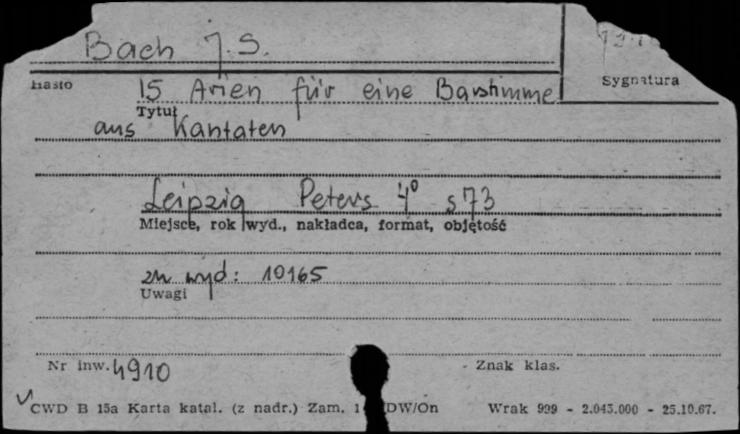 Bach J. S.
Hasło
Sygnatura
15 Arien für eine Basstimme
Tytuł
aus Kantaten
Leipzig Peters 4° s 73
Miejsce, rok wyd., nakładca, format, objętość
zn wyd: 10165
Uwagi
Nr inw. 4910
Znak klas.
CWD B 15a Karta katal. (z nadr.) Zam. DW/On Wrak 999 - 2.045.000 - 25.10.67.